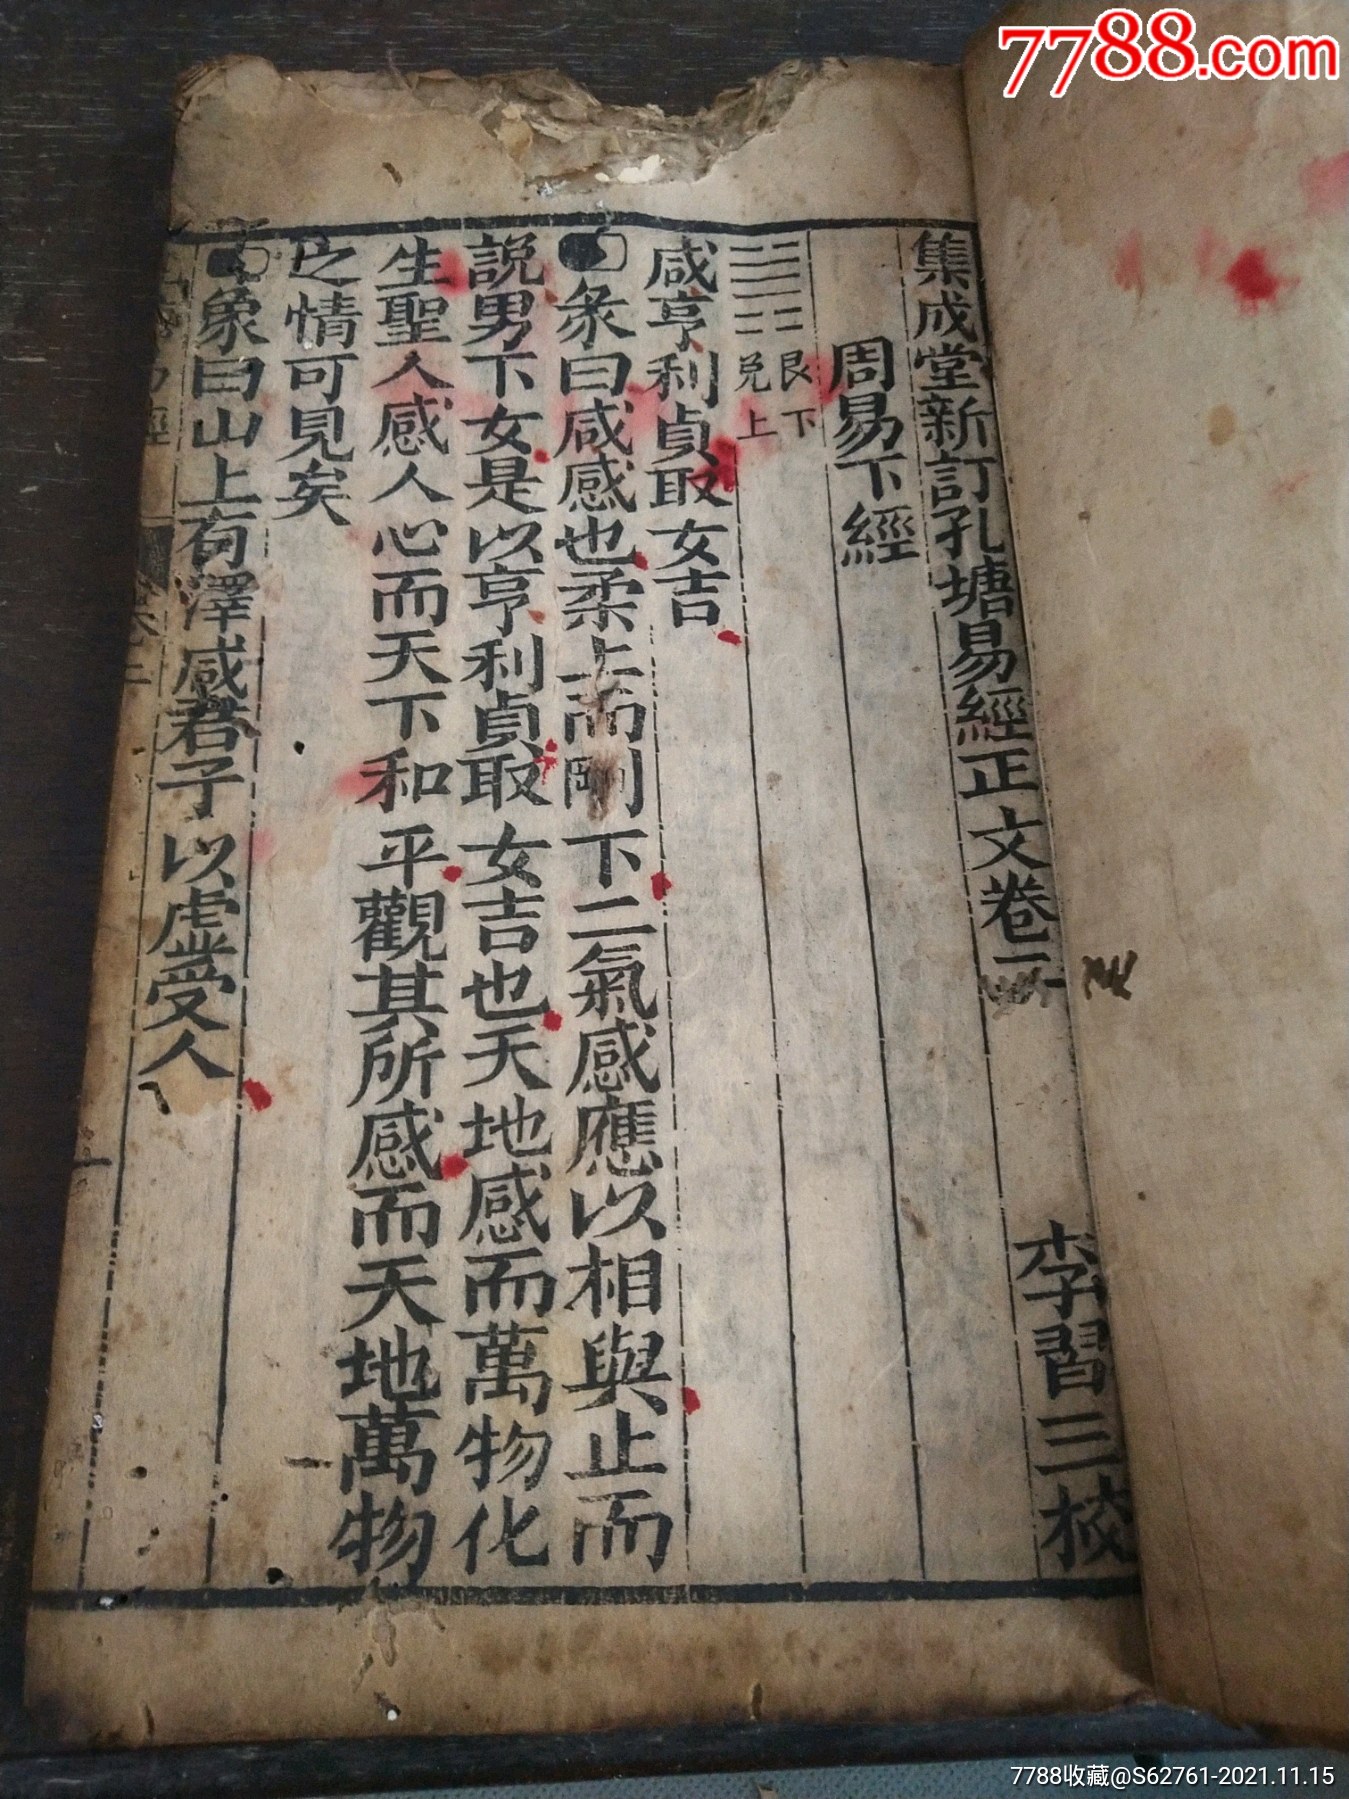 7788.com
集成堂新訂孔塘易經正文卷二 李習三校
周易下經
艮下
兌上
咸亨利貞取女吉
彖曰咸感也柔上而剛下二氣感應以相與止而
説男下女是以亨利貞取女吉也天地感而萬物化
生聖人感人心而天下和平觀其所感而天地萬物
之情可見矣
象曰山上有澤咸君子以虛受人
7788收藏@S62761-2021.11.15